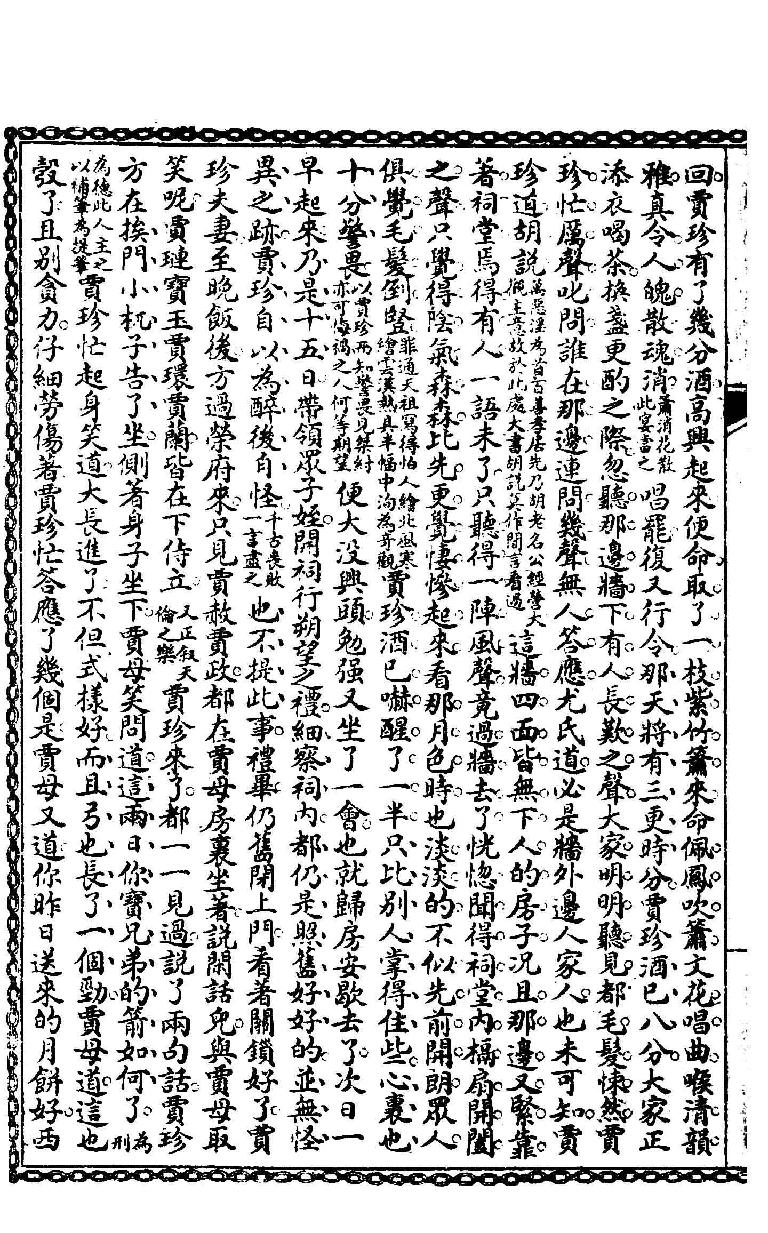 回賈珍有了幾分酒高興起來便命取了一枝紫竹簫來命佩鳳吹簫文花唱曲喉清韻
雅真令人魄散魂消簫消花散此宴書之唱罷復又行令那天將有三更時分賈珍酒已八分大家正
添衣喝茶換盞更酌之際忽聽那邊牆下有人長歎之聲大家明明聽見都毛髮悚然賈
珍忙厲聲叱問誰在那邊連問幾聲無人答應尤氏道必是牆外邊人家人也未可知賈
珍道胡說萬惡淫為首百善孝居先乃胡老名公經營大主意故於此處大書胡說莫作閒言看過這牆四面皆無下人的房子況且那邊又緊靠
著祠堂焉得有人一語未了只聽得一陣風聲竟過牆去了恍惚聞得祠堂內槅扇開闔
之聲只覺得陰氣森森比先更覺悽慘起來看那月色時也淡淡的不似先前開朗眾人
俱覺毛髮倒豎罪通天祖寫得怕人繪北風寒繪雲漢熱具半幅中洵為奇觀賈珍酒已嚇醒了一半只比別人掌得住些心裏也
十分警畏以賈珍而知警畏見桀紂亦可悔禍之人何等期望便大沒興頭勉强又坐了一會也就歸房安歇去了次日一
早起來乃是十五日帶領眾子姪開祠行朔望之禮細察祠內都仍是照舊好好的並無怪
異之跡賈珍自以為醉後自怪千古喪敗一言盡之也不提此事禮畢仍舊閉上門看著關鎖好了賈
珍夫妻至晚飯後方過榮府來只見賈赦賈政都在賈母房裏坐著說閑話兒與賈母取
笑呢賈璉寶玉賈環賈蘭皆在下侍立又正敘天倫之樂賈珍來了都一一見過說了兩句話賈珍
方在挨門小杌子告了坐側著身子坐下賈母笑問道這兩日你寶兄弟的箭如何了為刑
為德此人主之以補筆為提筆賈珍忙起身笑道大長進了不但式樣好而且弓也長了一個勁賈母道這也
彀了且別貪力仔細努傷著賈珍忙答應了幾個是賈母又道你昨日送來的月餅好西